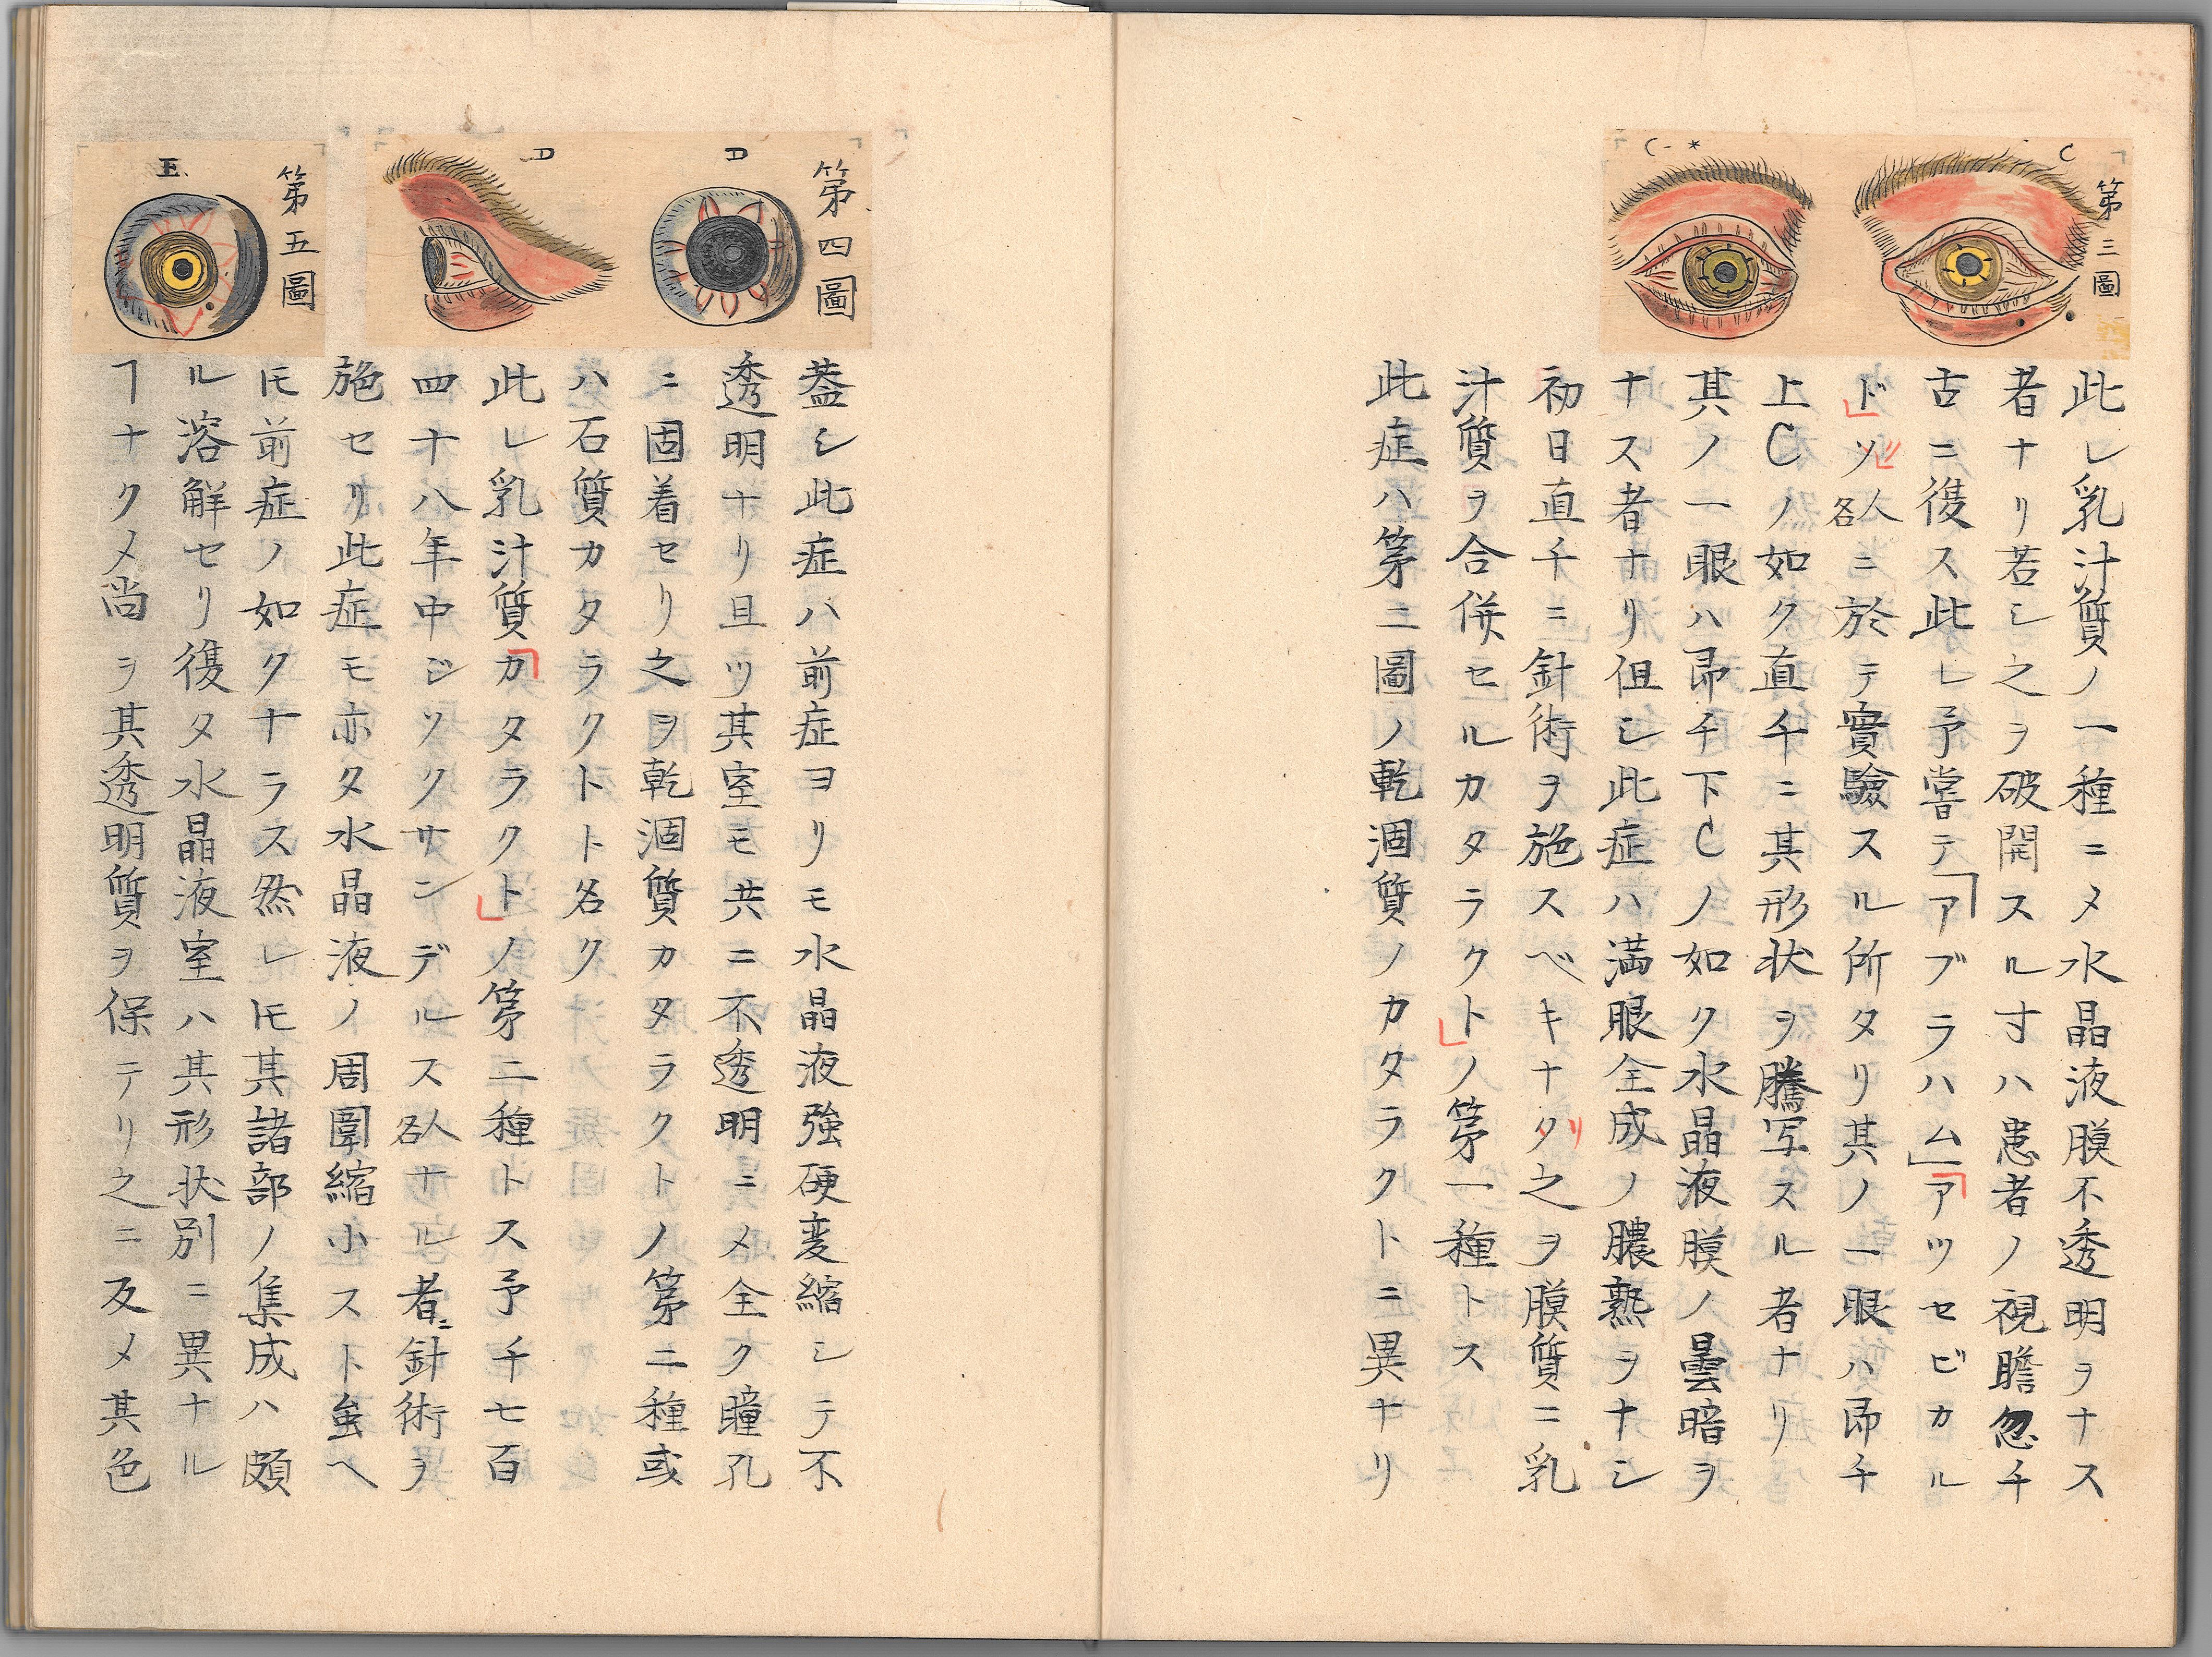 第三圖
C
C-*
此レ乳汁質ノ一種ニメ水晶液膜不透明ヲナス
者ナリ若シ之ヲ破開スル寸ハ患者ノ視瞻忽チ
古ニ復ス此レ予嘗テ「アブラハム」「アツセビカル
ド」ソ人名ニ於テ實驗スル所タリ其ノ一眼ハ即チ
上Cノ如ク直チニ其形状ヲ騰写スル者ナリ
其ノ一眼ハ即チ下Cノ如ク水晶液膜ノ曇暗ヲ
ナス者ナリ但シ此症ハ満眼全成ノ膿熟ヲナシ
初日直チニ針術ヲ施スベキナリ之ヲ膜質ニ乳
汁質ヲ合併セルカタラクト」ノ第一種トス
此症ハ第三圖ノ乾涸質ノカタラクトニ異ナリ
第四圖
D
D
蓋シ此症ハ前症ヨリモ水晶液強硬変縮シテ不
透明ナリ且ツ其室モ共ニ不透明ニメ全ク瞳孔
ニ固着セリ之ヲ乾涸質カタラクトノ第二種或
ハ石質カタラクトト名ク
此レ乳汁質「カタラクト」ノ第二種トス予千七百
四十八年中ジソクサンデルス人名ナル者ニ針術ヲ
施セリ此症モ亦タ水晶液ノ周圍縮小スト虽ヘ
𪜈前症ノ如クナラス然レ𪜈其諸部ノ集成ハ頗
ル溶解セリ復タ水晶液室ハ其形状別ニ異ナル
ヿナクメ尚ヲ其透明質ヲ保テリ之ニ反メ其色
第五圖
E